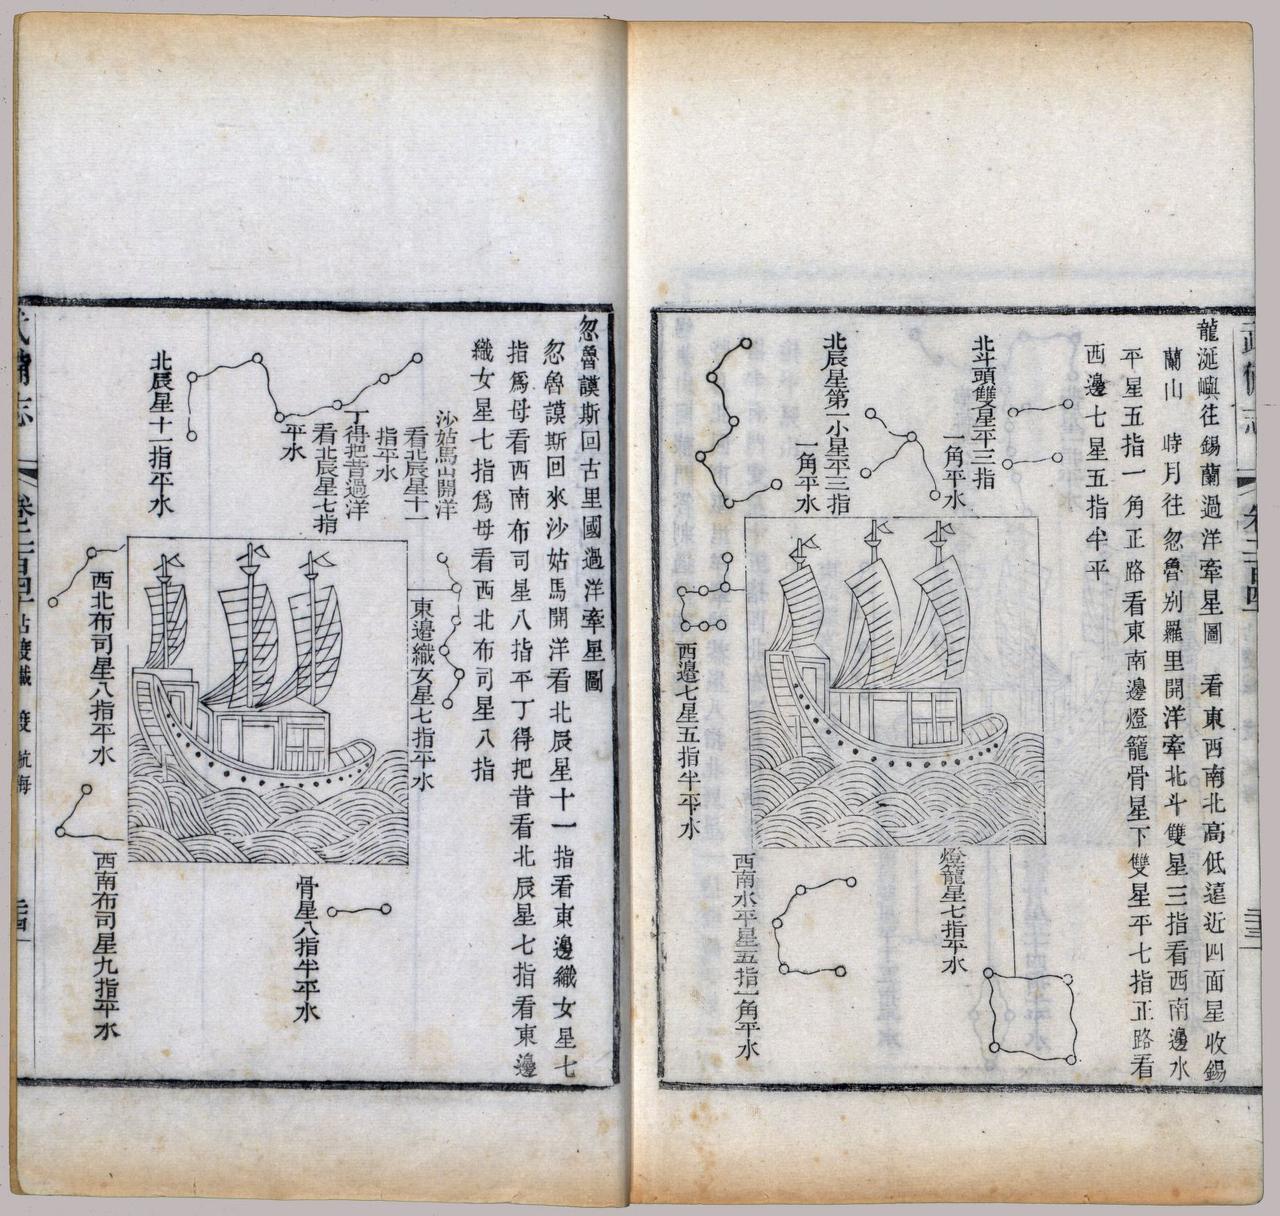 龍涎嶼往錫蘭過洋牽星圖　看東西南北高低遠近四面星收錫
蘭山　時月往忽魯別羅里開洋牽北斗雙星三指看西南邊水
平星五指一角正路看東南邊燈籠骨星下雙星平七指正路看
西邊七星五指半平
北斗頭雙星平三指
一角平水
北辰星第一小星平三指
一角平水
西邊七星五指半平水
燈籠星七指平水
西南水平星五指一角平水
忽魯謨斯回古里國過洋牽星圖
忽魯謨斯回來沙姑馬開洋看北辰星十一指看東邊織女星七
指爲母看西南布司星八指平丁得把昔看北辰星七指看東邊
織女星七指爲母看西北布司星八指
沙姑馬山開洋
看北辰星十一
指平水
丁得把昔過洋
看北辰星七指
平水
北辰星十一指平水
東邊織女星七指平水
西北布司星八指平水
骨星八指半平水
西南布司星九指平水
武備志
卷二百四十
航海